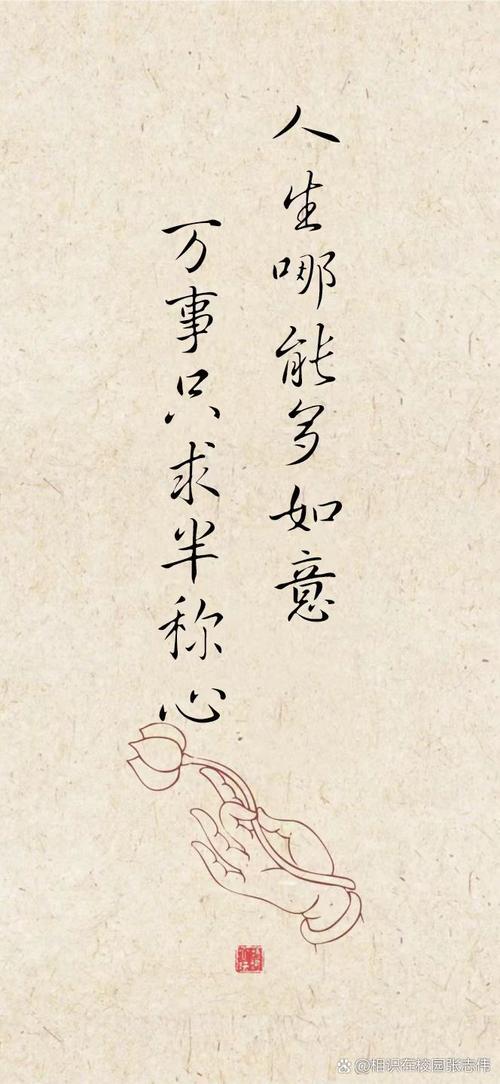 人生哪能多如意
万事只求半称心
@相识在校园张志伟